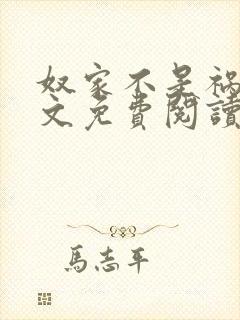 奴家不是祸
文免費閱讀
馬志平